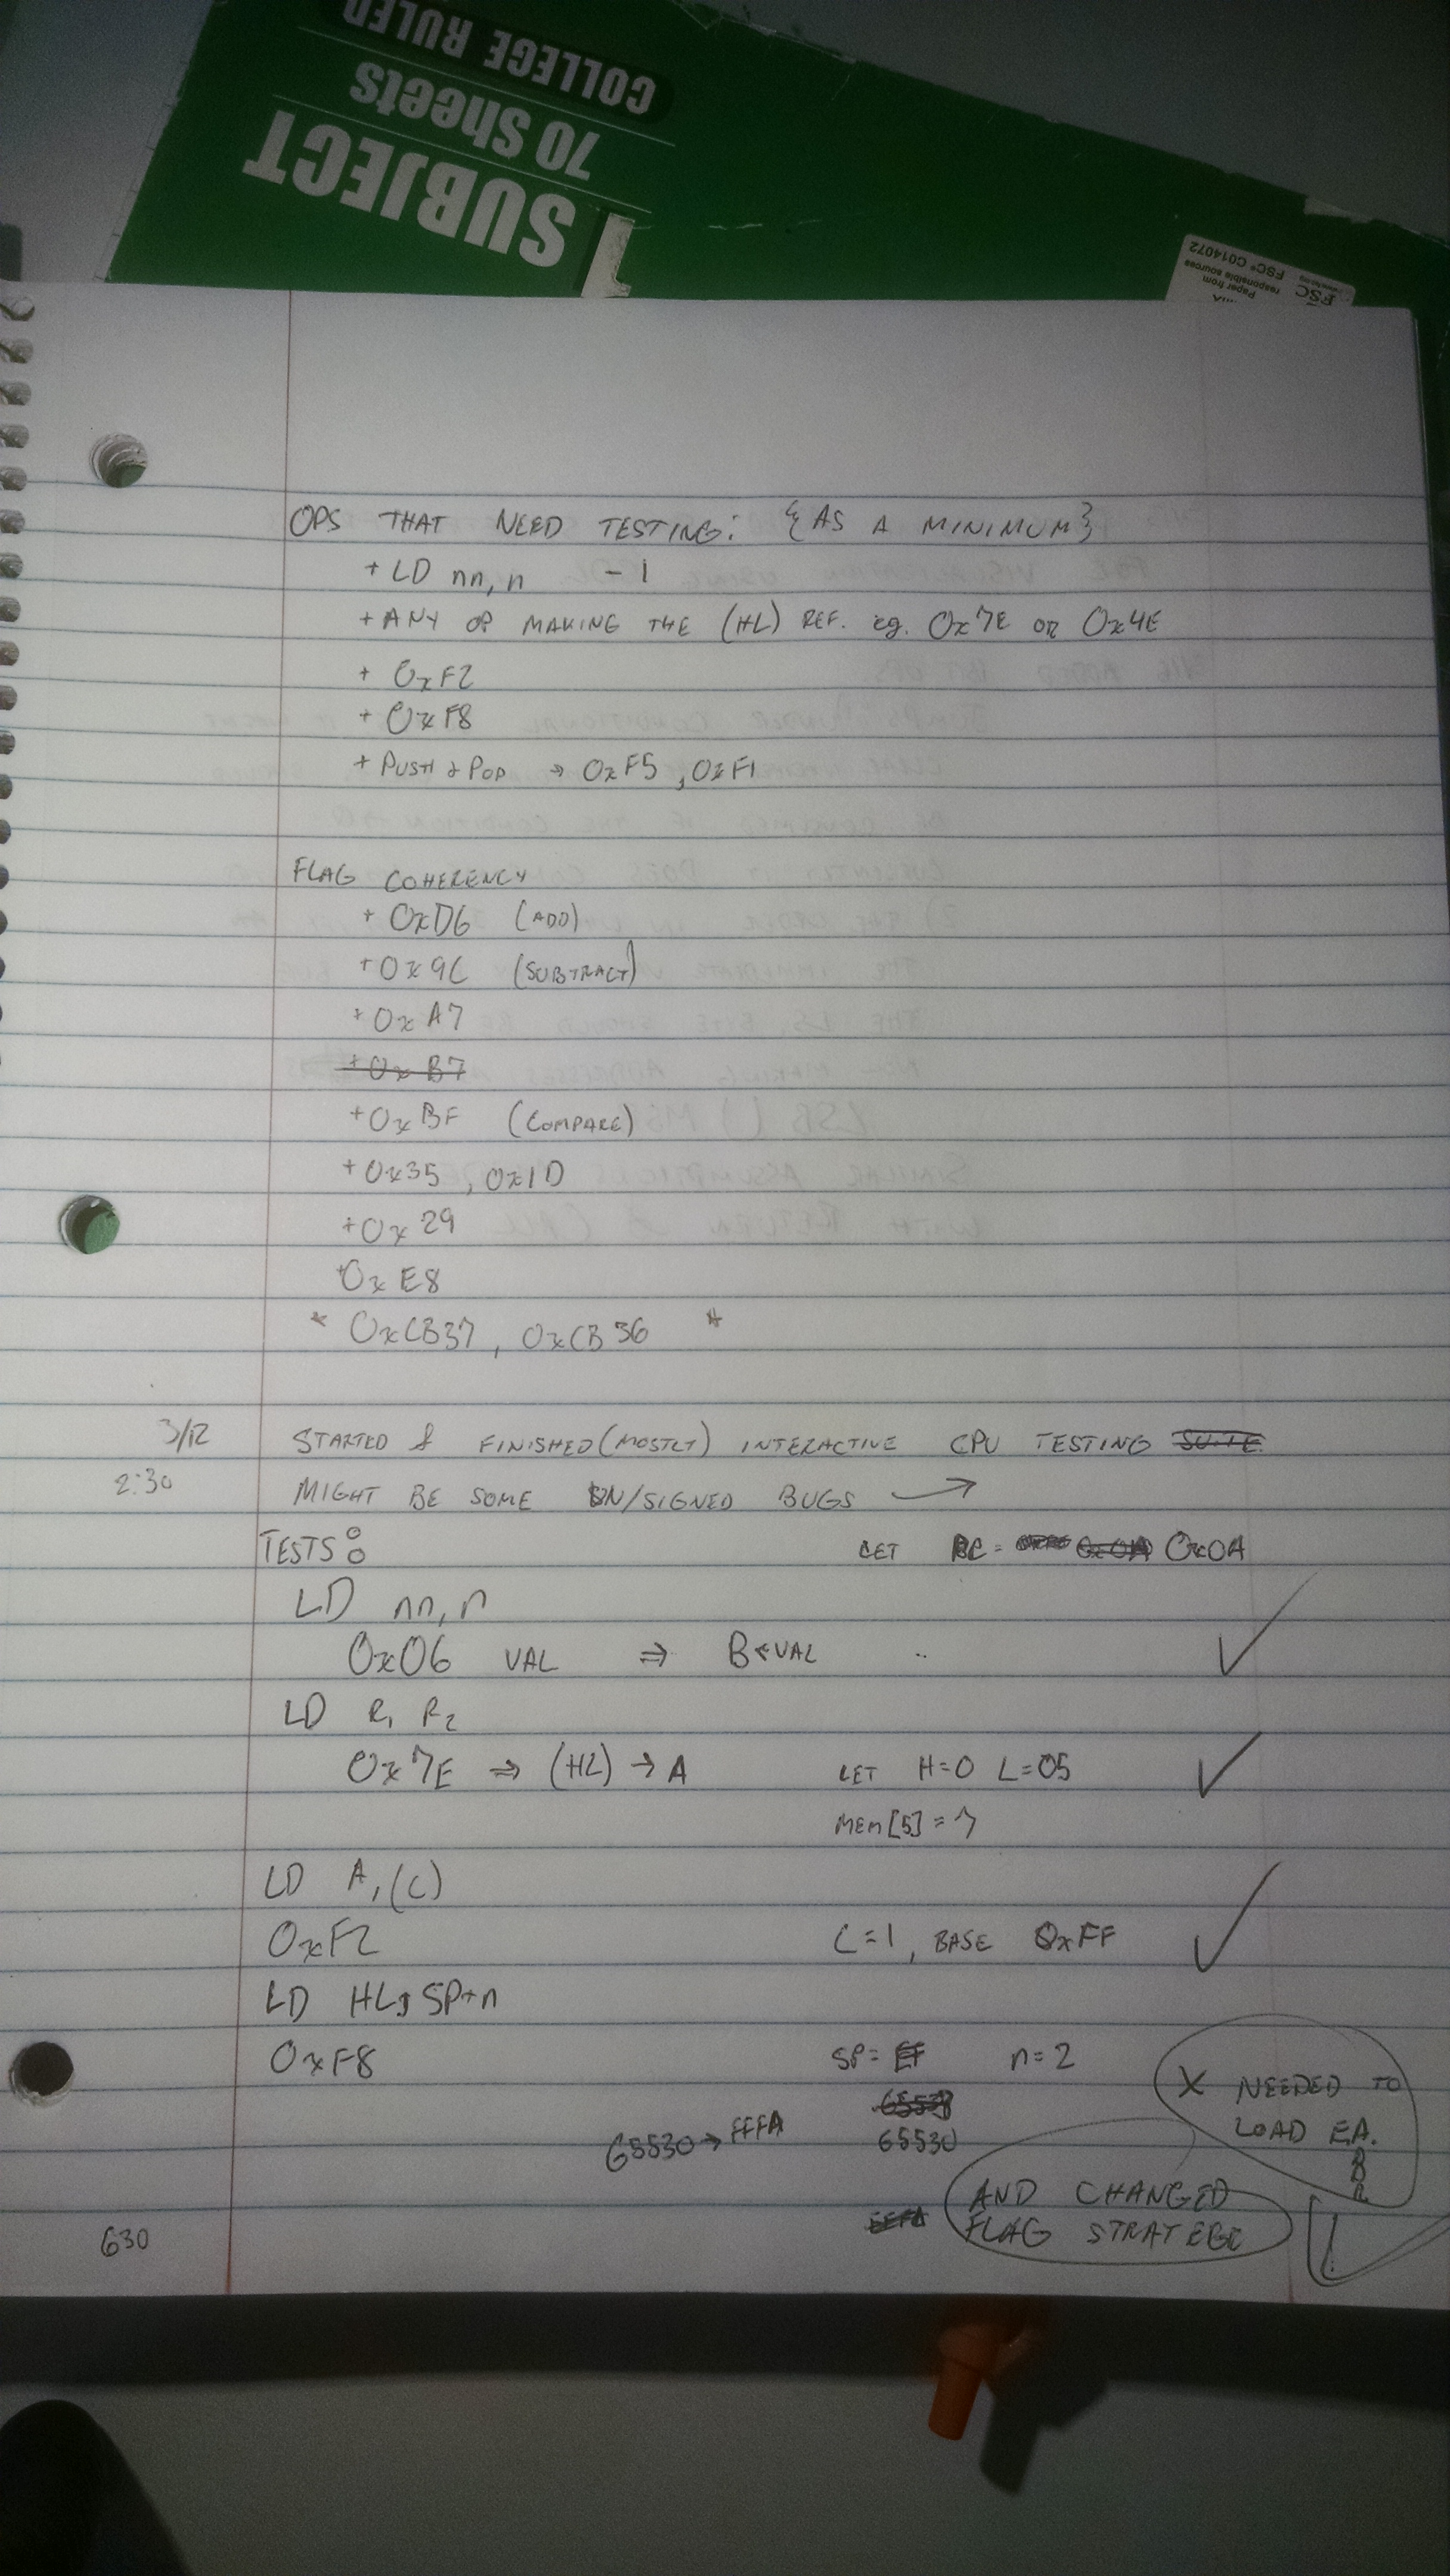 COLLEGE RULED
70 Sheets
1 SUBJECT
FSC
Paper from
responsible sources
FSC® C014072
OPS THAT NEED TESTING: {AS A MINIMUM}
+ LD nn, n - 1
+ ANY OP MAKING THE (HL) REF. eg. 0x7E OR 0x4E
+ 0xF2
+ 0xF8
+ PUSH & POP → 0xF5, 0xF1
FLAG COHERENCY
+ 0xD6 (ADD)
+ 0x9C (SUBTRACT)
+ 0xA7
+ 0xB7
+ 0xBF (COMPARE)
+ 0x35, 0x1D
+ 0x29
+ 0xE8
* 0xCB37, 0xCB36 *
3/12 STARTED & FINISHED (MOSTLY) INTERACTIVE CPU TESTING SUITE
2:30 MIGHT BE SOME UN/SIGNED BUGS →
TESTS: LET = 0x0A 0x0A
LD nn, n
0x06 VAL ⇒ B←VAL
LD R1 R2
0x7E ⇒ (HL) → A LET H=0 L=05
MEM[5] = 7
LD A, (C)
0xF2 C=1, BASE 0xFF
LD HL, SP+n
0xF8 SP= n=2
X NEEDED TO
65530 → FFFA 65530 LOAD EA.
AND CHANGED
630 FLAG STRATEGE